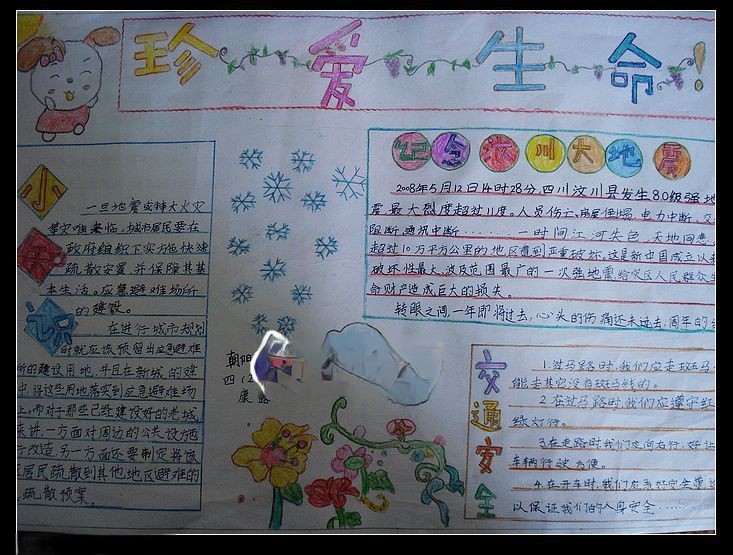 珍爱生命!
小知识
一旦地震或特大火灾
等灾难来临,城市居民要在
政府组织下实施快速
疏散安置,并保障其基
本生活。应急避难场所
的建设。
在进行城市规划
时就应该预留出应急避难
所的建设用地,并且在新城的建
中,将这些用地落实到应急避难场
上。而对于那些已经建设好的老城
来讲,一方面对周边的公共设施
行改造,另一方面还要制定将该
居民疏散到其他地区避难的
疏散预案。
朝阳
四(2
康露
纪念汶川大地震
2008年5月12日14时28分,四川汶川县发生8.0级强地
震,最大烈度超过11度。人员伤亡,房屋倒塌,电力中断,交
阻断,通讯中断………一时间江河失色,天地同悲,
超过10万平方公里的地区遭到严重破坏。这是新中国成立以来
破坏性最大、波及范围最广的一次强地震,给灾区人民群众生
命财产造成巨大的损失。
转眼之间,一年即将过去,心头的伤痛还未过去,周年的
交通安全
1.过马路时,我们应走斑马
能去其它没有斑马线的。
2.在过马路时我们应遵守红
绿灯行。
3.在走路时我们应向右行,好让
车辆行驶方便。
4.在开车时,我们应系好安全带,
以保证我们的人身安全……